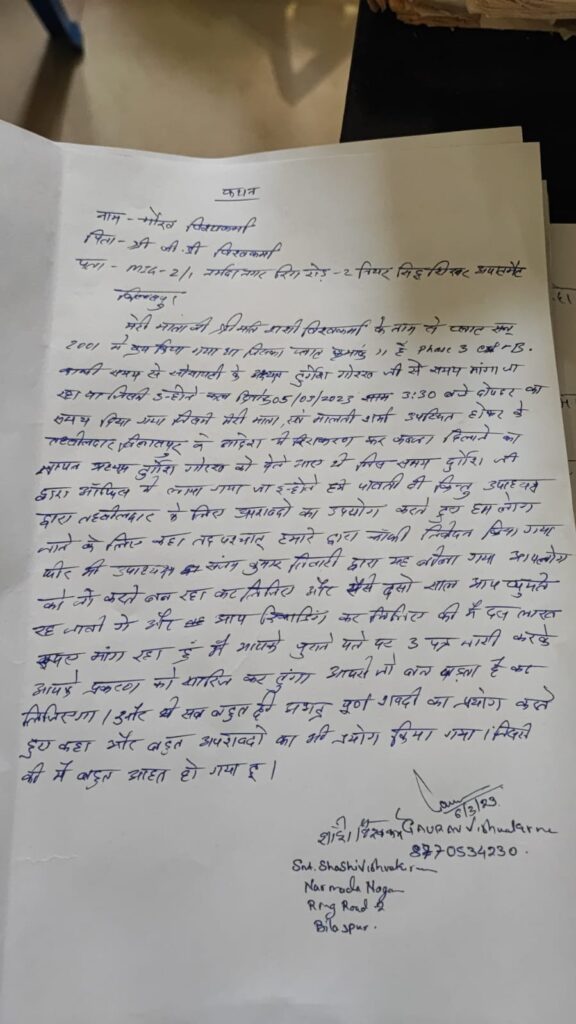 कथन
नाम - गौरव विश्वकर्मा
पिता - श्री जी.डी विश्वकर्मा
पता - MIG-2/1 नर्मदा नगर रिंग रोड - 2 नियर सिद्ध शिखर अपार्टमेंट
बिलासपुर
मेरी माता जी श्रीमति शशी विश्वकर्मा के नाम से प्लाट सन्
2001 में क्रय किया गया था जिसका प्लाट क्रमांक 11 है Phase 3 B.
काफी समय से सोसायटी के दुर्गेश गोरख जी से समय मांगा जा
रहा था जिसमें उन्होने कल दिनांक 05/03/2023 3:30 बजे दोपहर का
समय दिया गया जिसमें मेरी माता, एवं मालती शर्मा उपस्थित होकर के
तहसीलदार, बिलासपुर के में निराकरण कर कब्जा दिलाने का
ज्ञापन दुर्गेश गोरख को देने गए थे जिस समय दुर्गेश जी
द्वारा ऑफिस में गया जा इन्होने हमें पावती दी किन्तु उपाध्यक्ष
द्वारा तहसीलदार के लिए अपशब्दों का उपयोग करते हुए हम लोग
जाने के लिए कहा तद् पश्चात् हमारे द्वारा काफी निवेदन किया गया
फिर भी उपाध्यक्ष संजय कुमार तिवारी द्वारा यह बोला गया आपलोग
को जो करते बन रहा कर लिजिए और दसो साल आप घुमते
रह जाओगे और आप रिकार्डिंग कर लिजिए की मैं दस लाख
रूपए मांग रहा हूं मैं आपके पुराने पते पर 3 पत्र जारी करके
आपके प्रकरण को खारिज कर दूंगा आपसे जो बन सकता है कर
लिजिएगा। और ये सब बहुत ही पूर्ण शब्दों का प्रयोग करते
हुए कहा और बहुत अपशब्दो का भी प्रयोग किया गया।
की मैं बहुत आहत हो गया हू।
6/3/23.
शशी विश्वकर्मा GAURAV Vishwakarma
8770534230.
Smt. Shashi Vishwakarma
Narmada Nagar
Ring Road 2
Bilaspur.